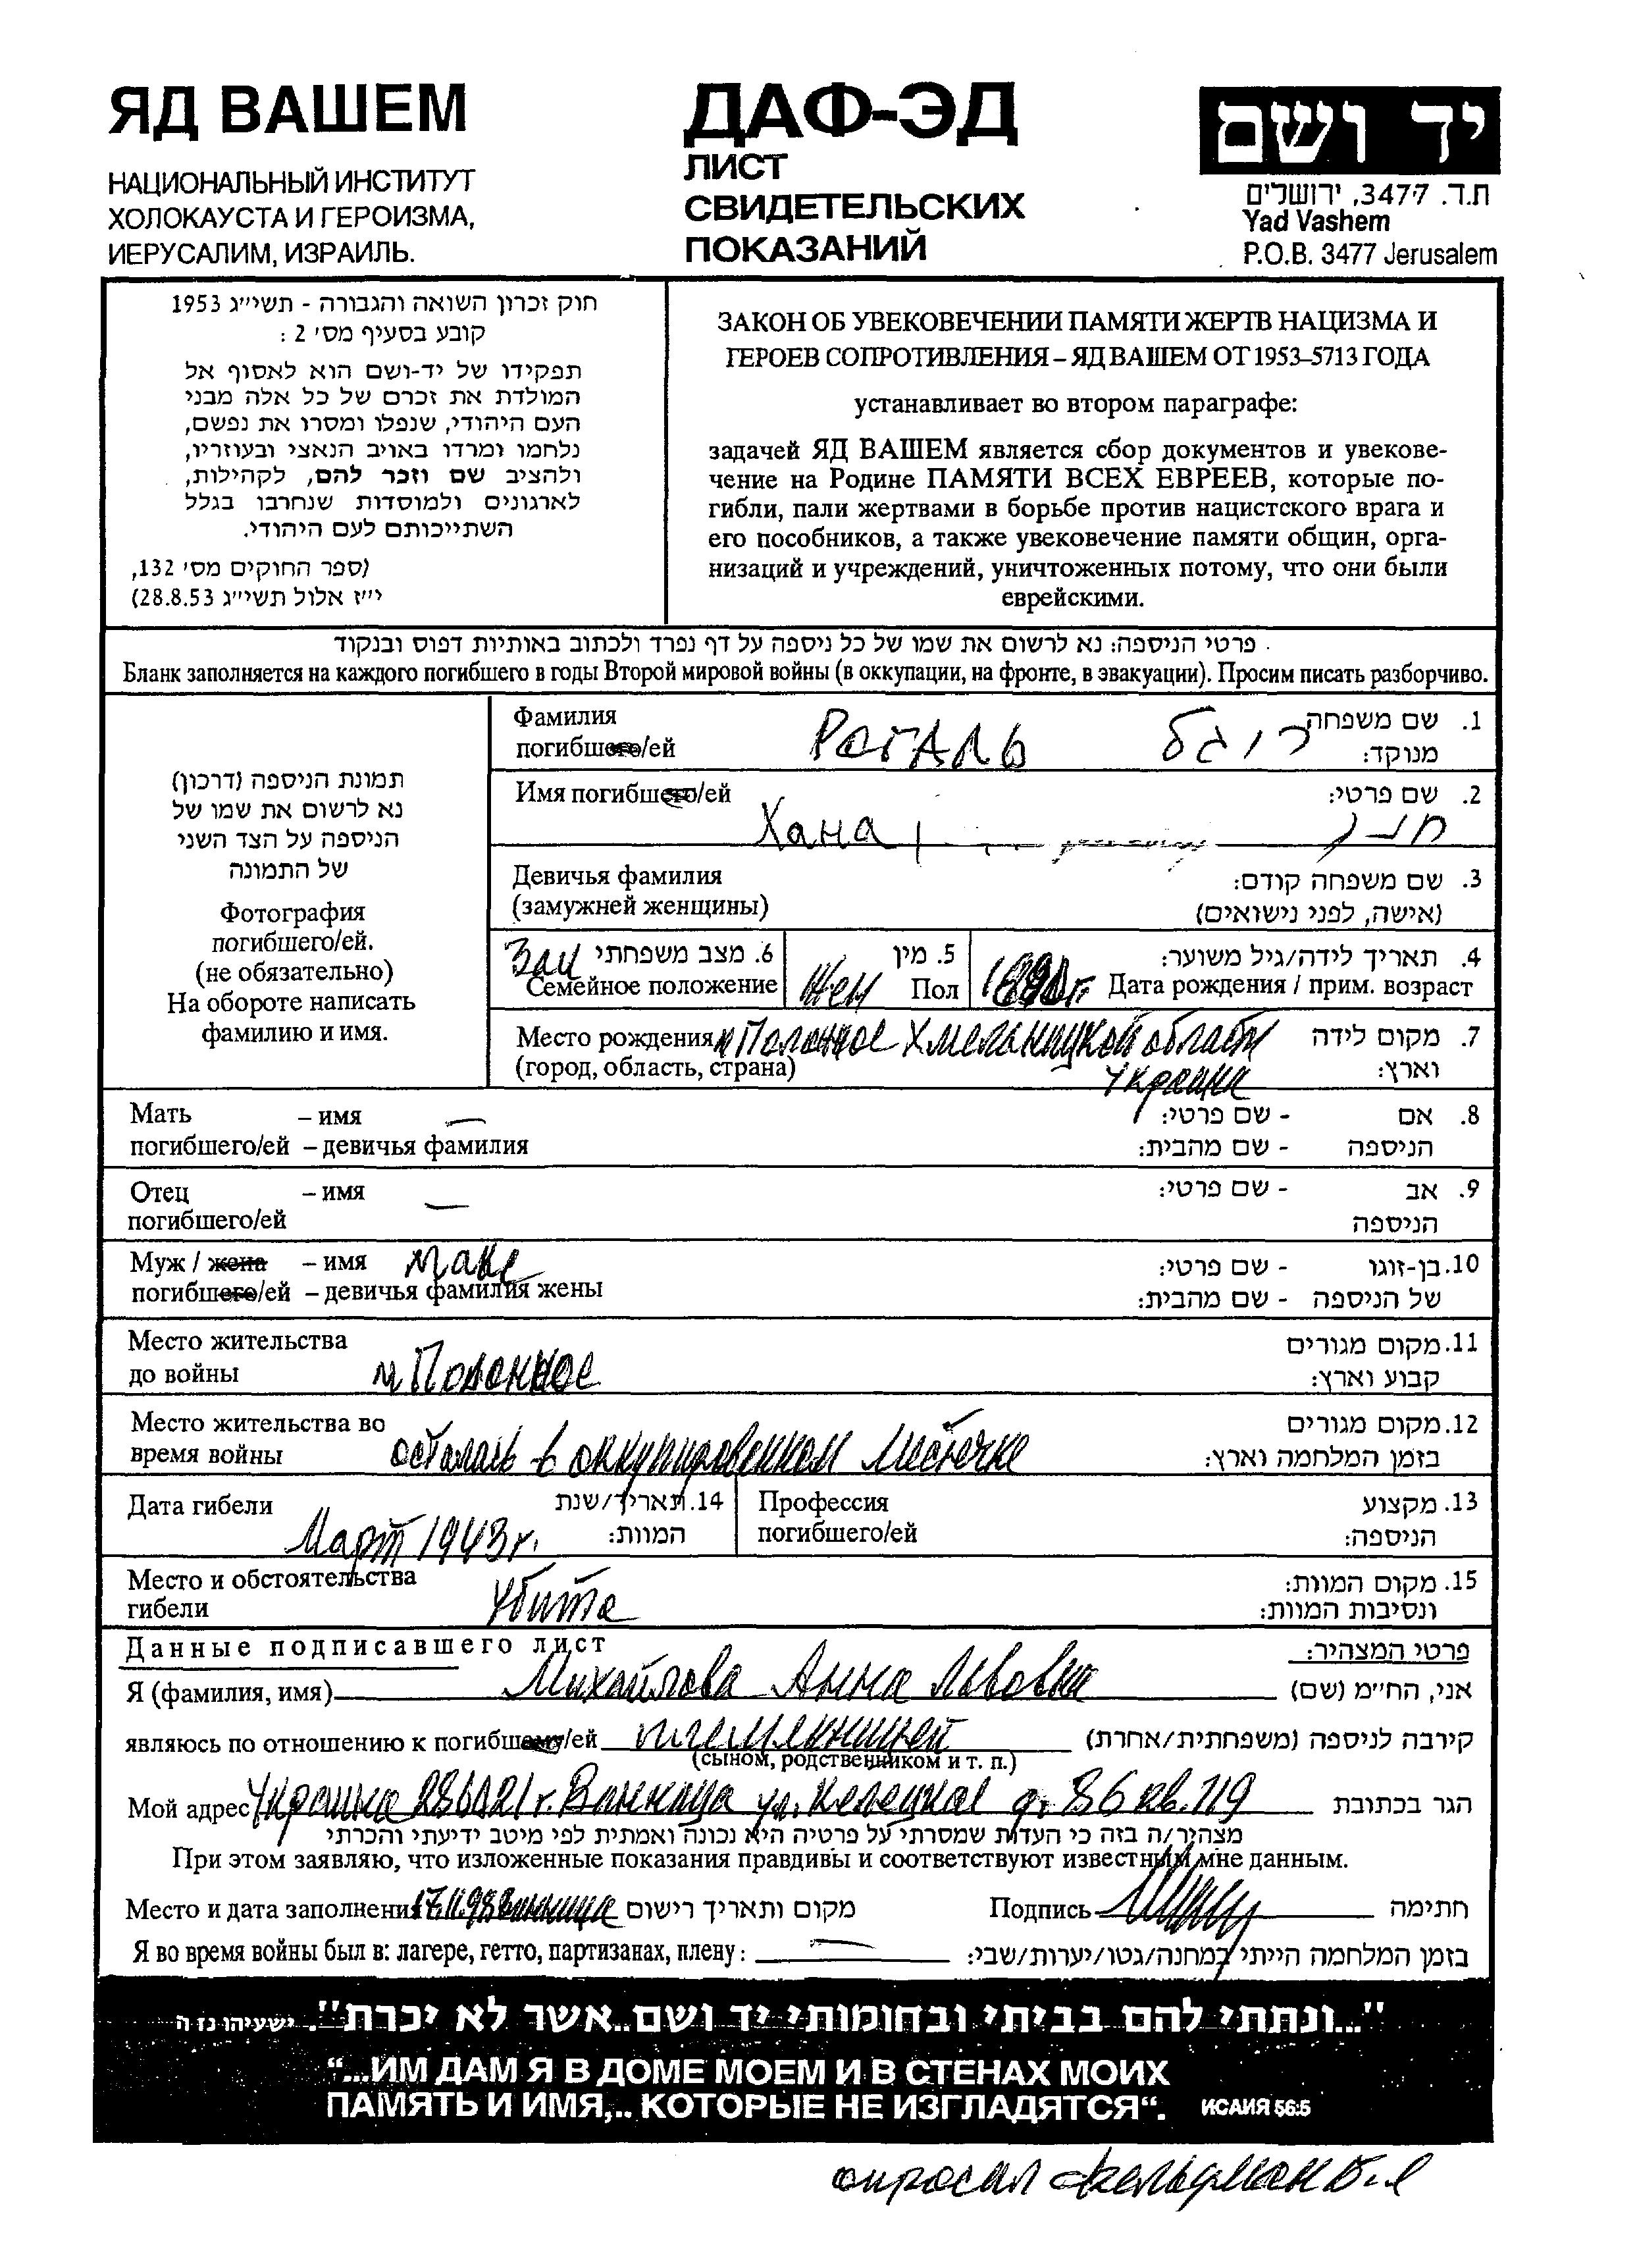 ЯД ВАШЕМ
НАЦИОНАЛЬНЫЙ ИНСТИТУТ
ХОЛОКАУСТА И ГЕРОИЗМА,
ИЕРУСАЛИМ, ИЗРАИЛЬ.
ДАФ-ЭД
ЛИСТ
СВИДЕТЕЛЬСКИХ
ПОКАЗАНИЙ
יד ושם
ת.ד. 3477, ירושלים
Yad Vashem
P.O.B. 3477 Jerusalem
חוק זכרון השואה והגבורה - תשי״ג 1953
קובע בסעיף מס׳ 2 :
תפקידו של יד-ושם הוא לאסוף אל
המולדת את זכרם של כל אלה מבני
העם היהודי, שנפלו ומסרו את נפשם,
נלחמו ומרדו באויב הנאצי ובעוזריו,
ולהציב שם וזכר להם, לקהילות,
לארגונים ולמוסדות שנחרבו בגלל
השתייכותם לעם היהודי.
(ספר החוקים מס׳ 132,
י״ז אלול תשי״ג 28.8.53)
ЗАКОН ОБ УВЕКОВЕЧЕНИИ ПАМЯТИ ЖЕРТВ НАЦИЗМА И
ГЕРОЕВ СОПРОТИВЛЕНИЯ – ЯД ВАШЕМ ОТ 1953–5713 ГОДА
устанавливает во втором параграфе:
задачей ЯД ВАШЕМ является сбор документов и увекове-
чение на Родине ПАМЯТИ ВСЕХ ЕВРЕЕВ, которые по-
гибли, пали жертвами в борьбе против нацистского врага и
его пособников, а также увековечение памяти общин, орга-
низаций и учреждений, уничтоженных потому, что они были
еврейскими.
פרטי הניספה: נא לרשום את שמו של כל ניספה על דף נפרד ולכתוב באותיות דפוס ובנקוד
Бланк заполняется на каждого погибшего в годы Второй мировой войны (в оккупации, на фронте, в эвакуации). Просим писать разборчиво.
תמונת הניספה (דרכון)
נא לרשום את שמו של
הניספה על הצד השני
של התמונה
Фотография
погибшего/ей.
(не обязательно)
На обороте написать
фамилию и имя.
Фамилия
погибшего/ей РОГАЛЬ רוגל 1. שם משפחה
מנוקד:
Имя погибшего/ей 2. שם פרטי:
Хана חנה
Девичья фамилия 3. שם משפחה קודם:
(замужней женщины) (אישה, לפני נישואים)
Зам 6. מצב משפחתי 5. מין 4. תאריך לידה/גיל משוער:
Семейное положение жен Пол 1890г. Дата рождения / прим. возраст
Место рождения м Полонное Хмельницкой области 7. מקום לידה
(город, область, страна) Украина וארץ:
Мать – имя — - שם פרטי: 8. אם
погибшего/ей – девичья фамилия - שם מהבית: הניספה
Отец – имя — - שם פרטי: 9. אב
погибшего/ей הניספה
Муж / жена – имя - שם פרטי: 10. בן-זוגו
погибшего/ей – девичья фамилия жены - שם מהבית: של הניספה
Место жительства 11. מקום מגורים
до войны м Полонное קבוע וארץ:
Место жительства во 12. מקום מגורים
время войны осталась в оккупированном местечке בזמן המלחמה וארץ:
Дата гибели 14. תאריך/שנת Профессия 13. מקצוע
Март 1943г. המוות: погибшего/ей הניספה:
Место и обстоятельства 15. מקום המוות:
гибели Убита ונסיבות המוות:
Данные подписавшего лист פרטי המצהיר:
Я (фамилия, имя) Михайлова Анна Львовна אני, החי״מ (שם)
являюсь по отношению к погибшему/ей племянницей קירבה לניספה (משפחתית/אחרת)
(сыном, родственником и т. п.)
Мой адрес Украина 286021 г. Винница ул. Келецкая д. 86 кв. 119 הגר בכתובת
מצהיר/ה בזה כי העדות שמסרתי על פרטיה היא נכונה ואמתית לפי מיטב ידיעתי והכרתי
При этом заявляю, что изложенные показания правдивы и соответствуют известным мне данным.
Место и дата заполнения Винница מקום ותאריך רישום Подпись חתימה
Я во время войны был в: лагере, гетто, партизанах, плену: — בזמן המלחמה הייתי במחנה/גטו/יערות/שבי:
"...ונתתי להם בביתי ובחומותי יד ושם..אשר לא יכרת". ישעיהו נז ה
“...ИМ ДАМ Я В ДОМЕ МОЕМ И В СТЕНАХ МОИХ
ПАМЯТЬ И ИМЯ,.. КОТОРЫЕ НЕ ИЗГЛАДЯТСЯ“. ИСАИЯ 56:5
опросил Фельдман Б.Я